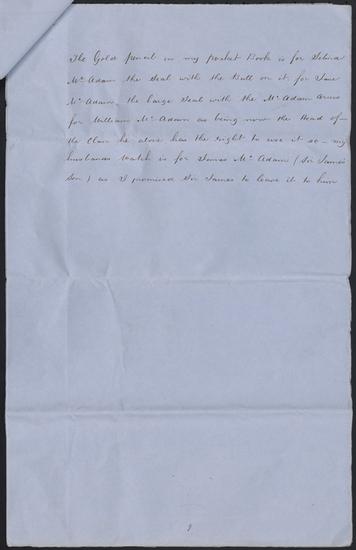 The Gold pencil in my pocket Book is for Selina
McAdam the Seal with the Bull on it, for Jane
McAdam, the large Seal with the McAdam Arms
for William McAdam as being now the Head of
the Clan he alone has the right to use it so – my
husbands Watch is for James McAdam (Sir James's
Son) as I promised Sir James to leave it to him
9